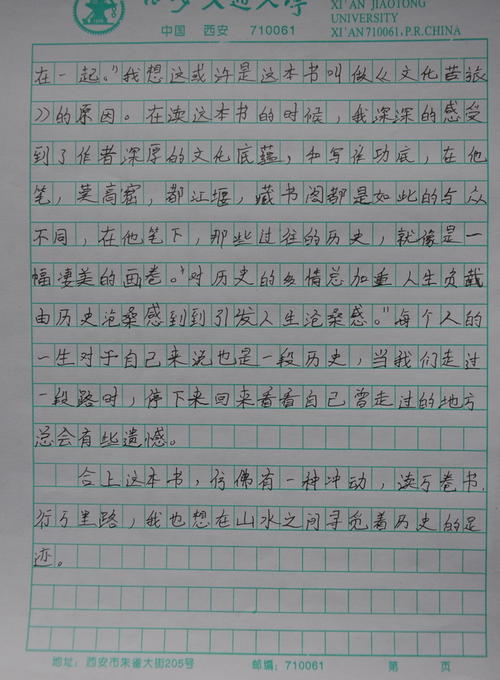 西安交通大学
XI'AN JIAOTONG
UNIVERSITY
中国 西安 710061
XI'AN 710061, P.R.CHINA
在一起。”我想这或许是这本书叫做《文化苦旅
》的原因。在读这本书的时候，我深深的感受
到了作者深厚的文化底蕴，和写作功底，在他
笔，莫高窟，都江堰，藏书阁都是如此的与众
不同，在他笔下，那些过往的历史，就像是一
幅凄美的画卷。“对历史的多情总加重人生负载
由历史沧桑感到到引发人生沧桑感。”每个人的
一生对于自己来说也是一段历史，当我们走过
一段路时，停下来回来看看自己曾走过的地方
总会有些遗憾。
合上这本书，仿佛有一种冲动，读万卷书，
行万里路，我也想在山水之间寻觅着历史的足
迹。
地址：西安市朱雀大街205号 邮编：710061 第 页